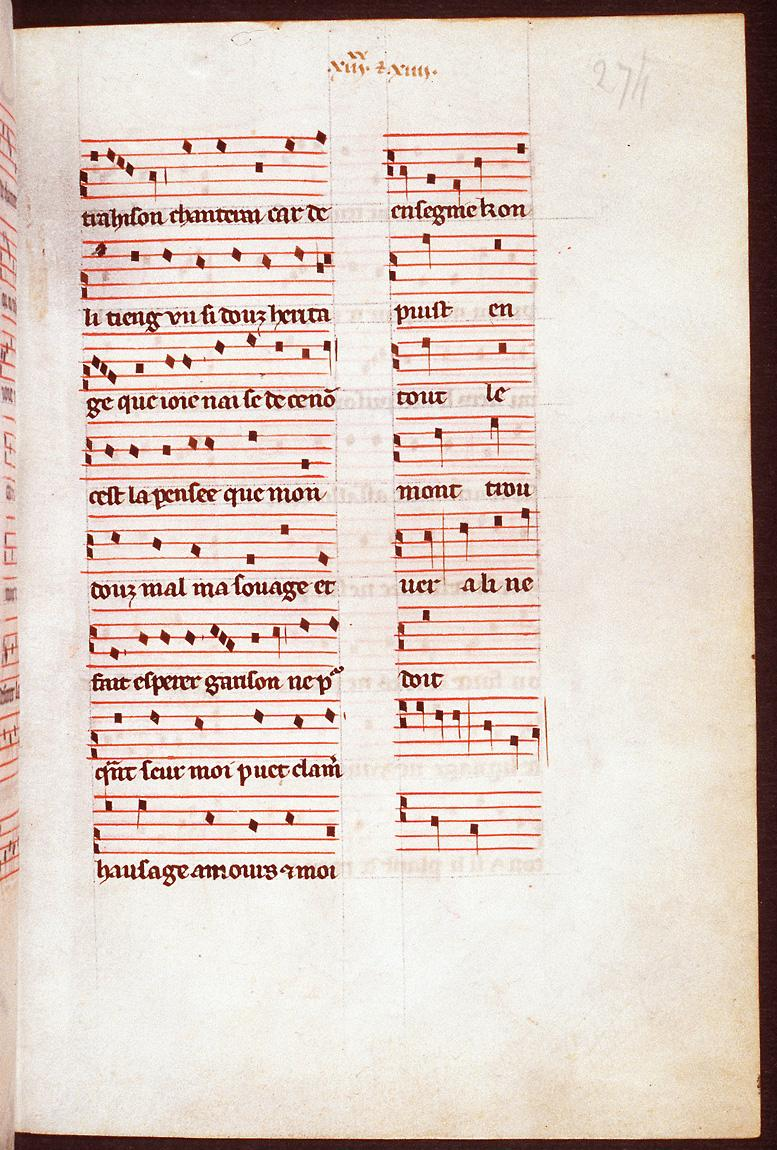 .xiij. 7 .xiiij.
xx
274
trahison chanterai car de
li tieng vn si douz herita
ge que ioie nai se de ce nō
cest la pensee que mon
douz mal ma souage et
fait esperer garison ne p
q̄nt seur moi puet clam̄
hausage amours 7 moi
enseigne kon
puist en
tout le
mont trou
uer a li ne
doit